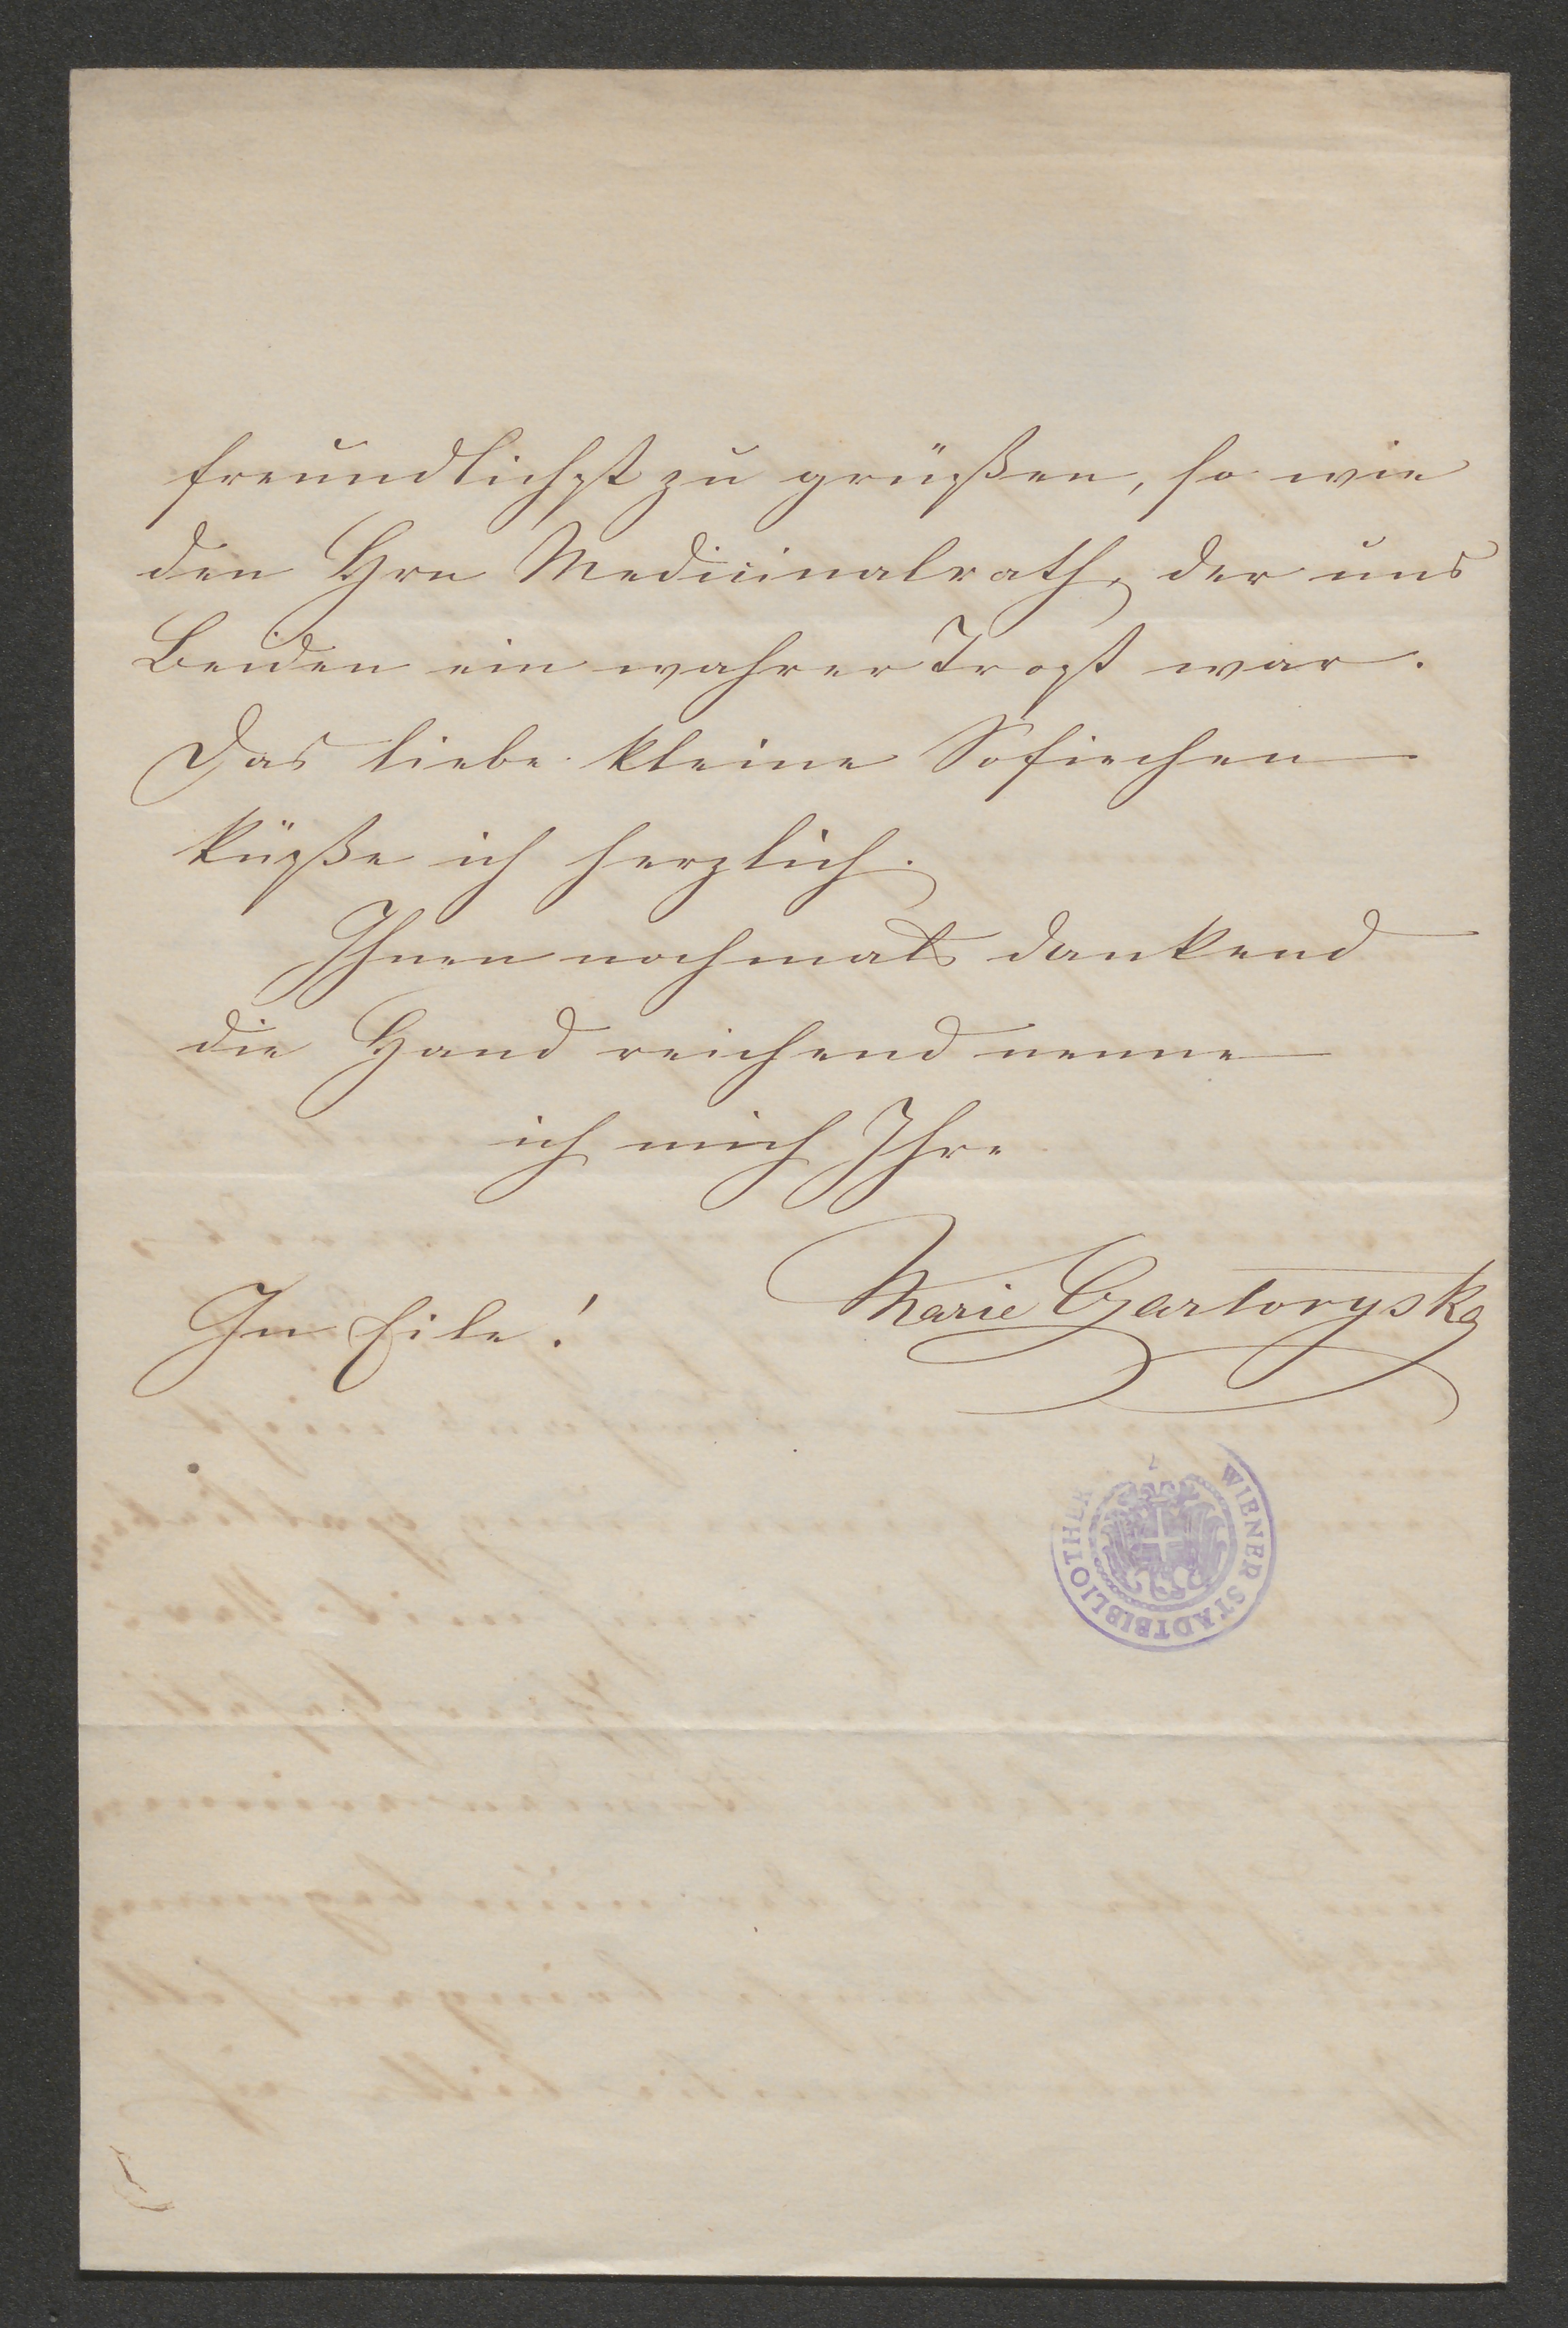 freundlichst zu grüßen, so wie
den Hrn Medicinalrath, der uns
Beiden ein wahrer Trost war.
Das liebe kleine Sofiechen
küße ich herzlich.
Ihnen nochmals dankend
die Hand reichend nenne
ich mich Ihre
Marie Czartoryska
In Eile!
WIENER STADTBIBLIOTHEK